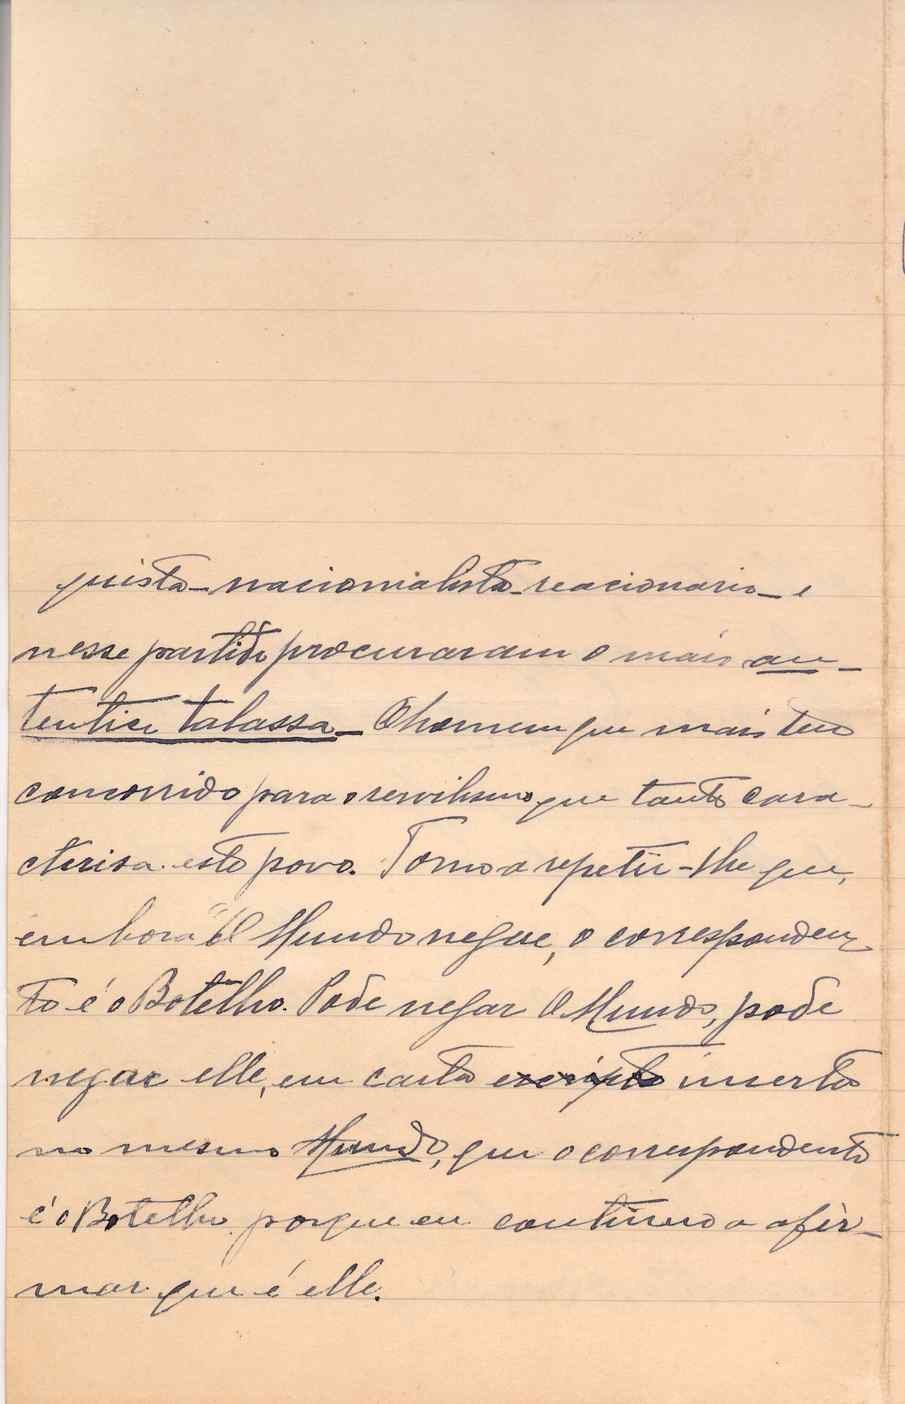 quista-nacionalista-reacionario-e
nesse partido procuraram o mais au-
tentico talassa- O homem que mais tem
concorrido para o servilismo que tanto cara-
cterisa este povo. Torno a repetir-lhe que,
embora "O Mundo negue, o corresponden-
te é o Botelho. Pode negar O Mundo, pode
negar elle, em carta escripta inserta
no mesmo Mundo, que o correspondente
é o Botelho porque eu continuo a afir-
mar que é elle.